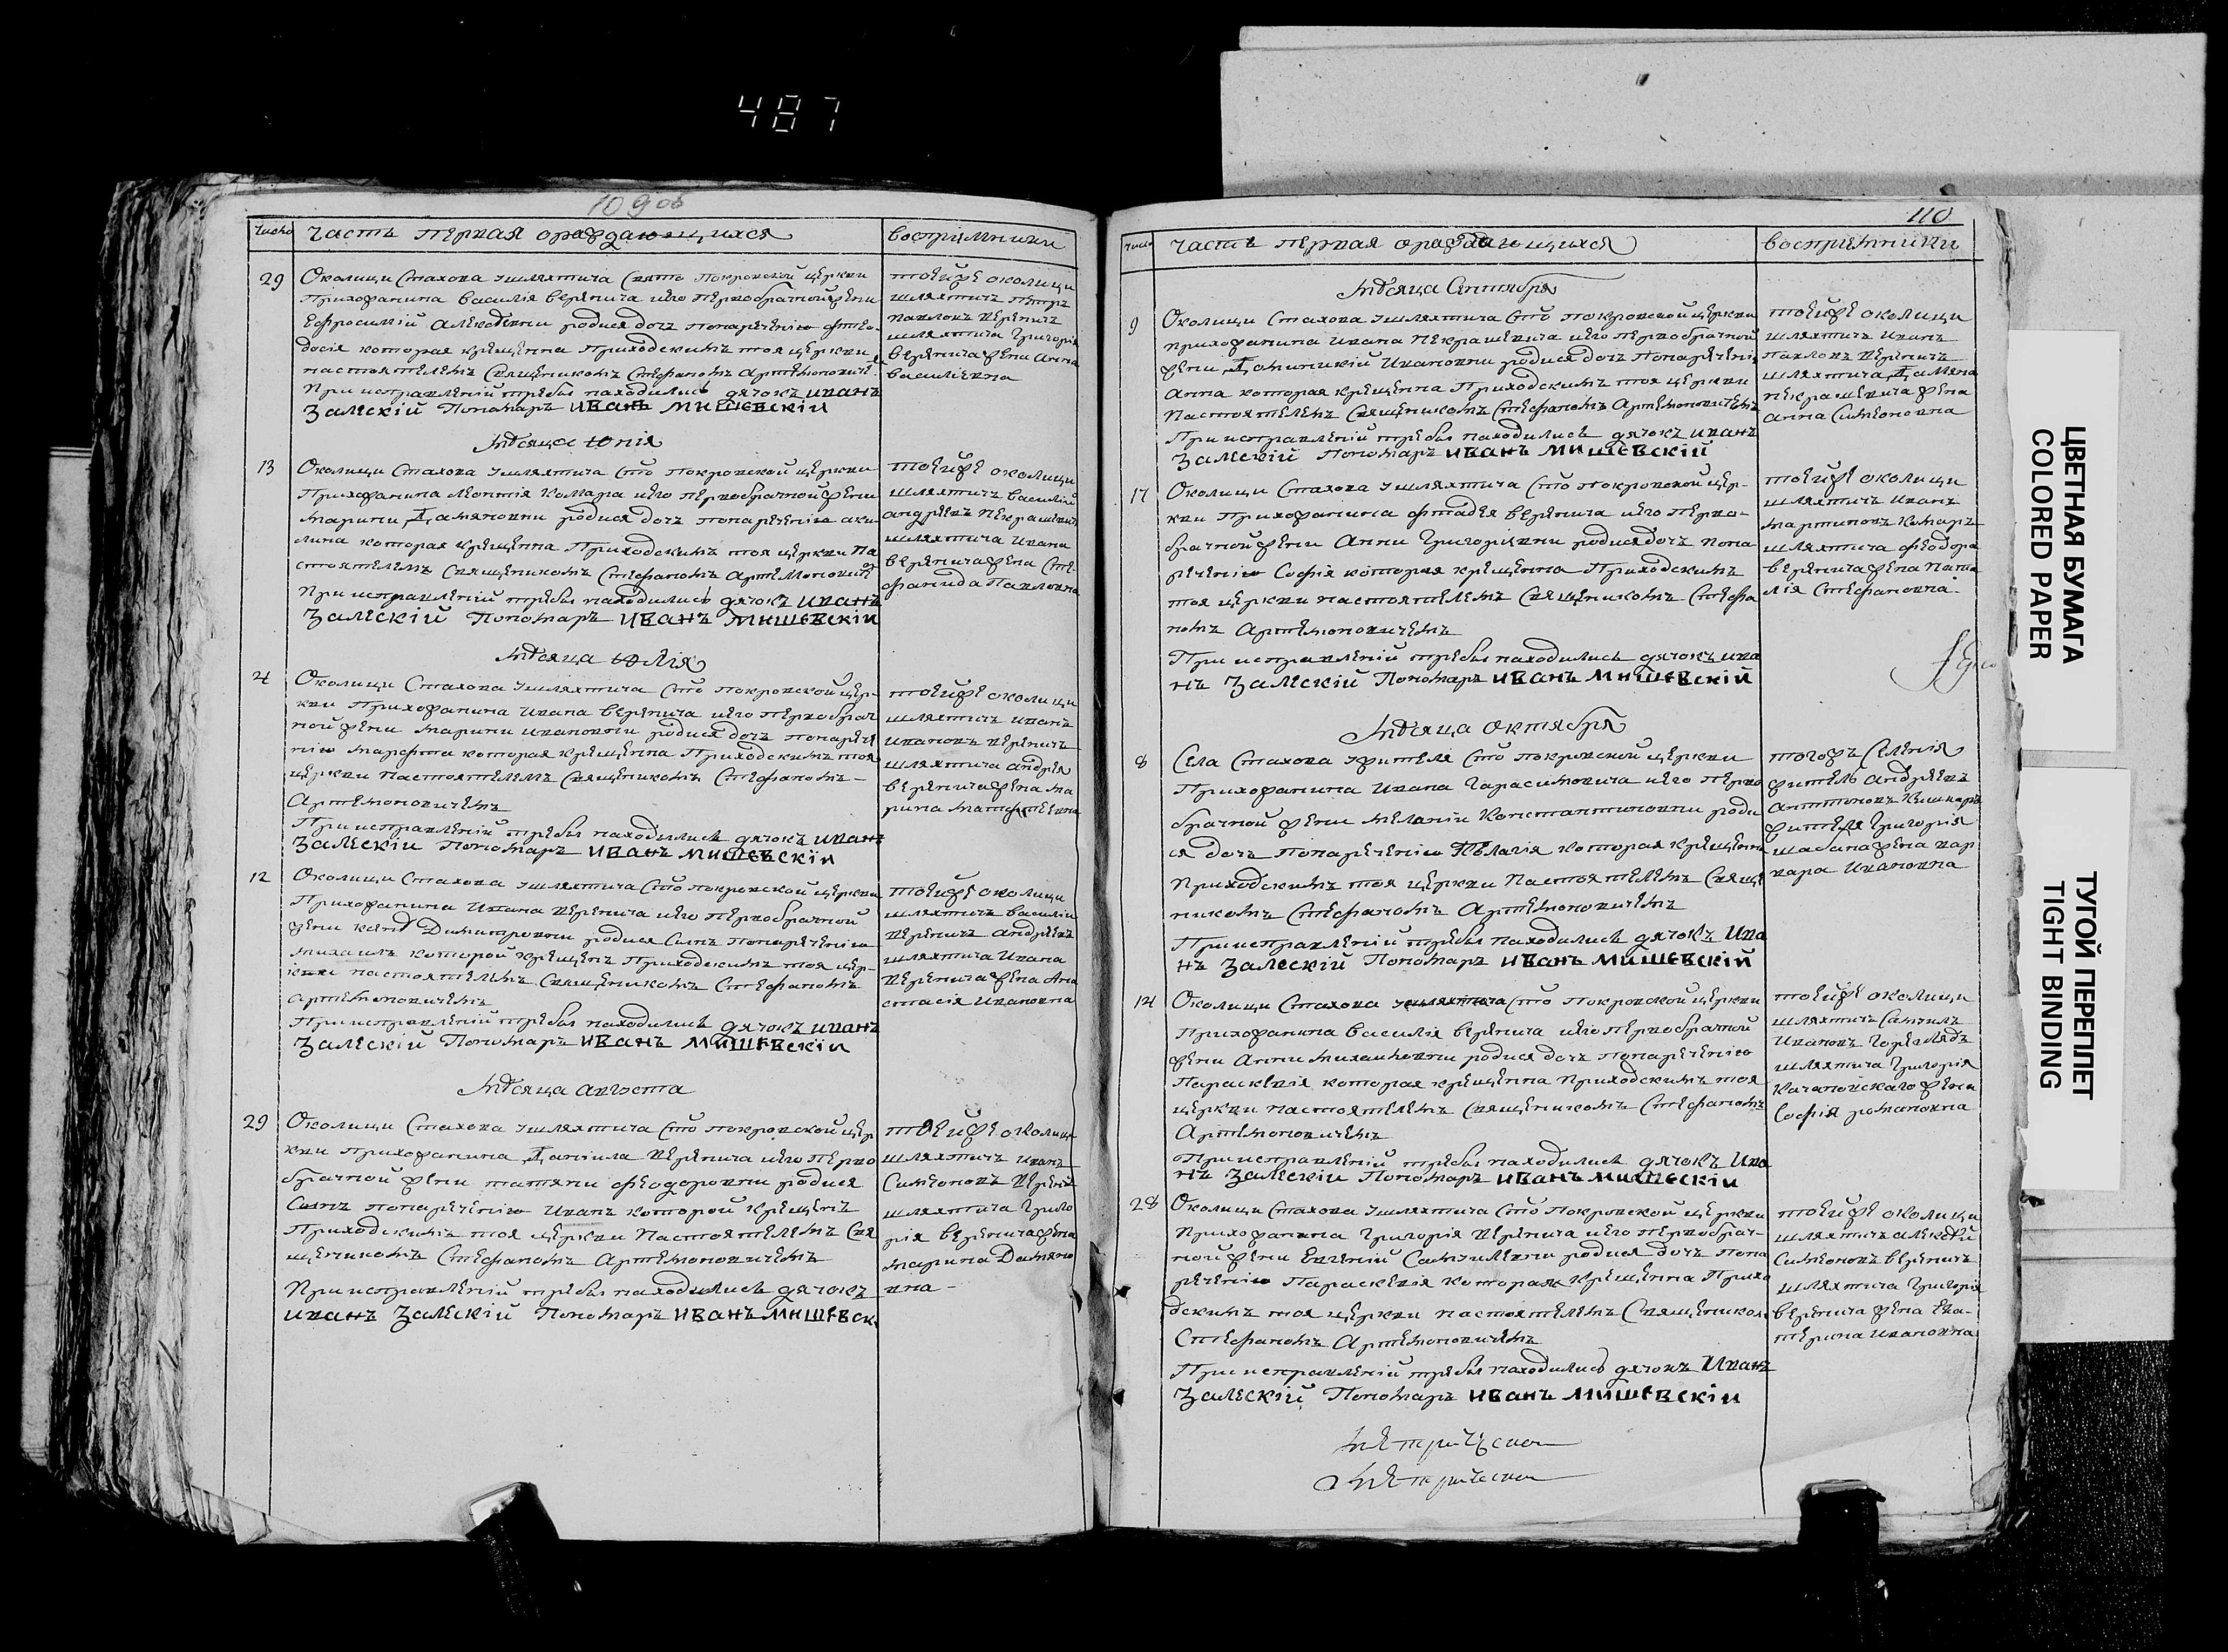 487
109 об
Число
Часть первая ораждающихся
восприемники
29
Околицы Стахова ушляхтича Свято Покровской церкви
Прихожанина Василія веренича иего первобрачной жены
Ефросиній Алексѣевны родися дочь понареченію Фтео-
досія которая крещенна Приходскимъ тоя церкви
настоятелемъ Священникомъ Стефаномъ Артемоновиче
При исправленій требы находились дячокъ иванъ
Залескій Пономарь иванъ мишевскіи
тоейже околицы
шляхтичь петръ
павловъ веренич
шляхтича Григорія
веренича жена Анна
василіевна
Мѣсяца юнія
13
Околицы Стахова ушляхтича Сто покровской церкви
Прихожанина Леонтія Комара иего первобрачной жены
Марины Дамяновны родися дочь понареченію аку-
лина которая крещенна Приходскимъ тоя церкви На
стоятелемъ Священникомъ Стефаномъ Артемонович
При исправленій требы находились дячокъ иванъ
Залескій Пономарь иванъ мишевскіи
тоейже околицы
шляхтичь василій
андреевъ некрашевич
шляхтича Ивана
веренича жена Сте-
фанида Павловна
Мѣсяца юлія
4
Околицы Стахова ушляхтича Сто покровской цер-
кви Прихожанина Ивана веренича иего первобрач
ной жены марины ивановны родися дочь нарече
нію марфта которая крещенна Приходскимъ тоя
церкви настоятелемъ Священникомъ Стефаномъ-
Артемоновичемъ
При исправленій требы находились дячокъ иванъ
Залескіи Пономарь иванъ мишевскіи
тоейже околицы
шляхтичь иванъ
ивановъ веренич
шляхтича андрея
веренича жена ма
рина матфеевна
12
Околицы Стахова ушляхтича Сто покровской церкви
Прихожанина Ивана веренича иего первобрачной
жены Димитровны родися Сынъ понареченію
михаилъ которой крещенъ Приходскимъ тоя цер-
кви настоятелемъ Священникомъ Стефаномъ
Артемоновичемъ
При исправленій требы находились дячокъ иванъ
Залескіи Пономарь иванъ мишевскіи
тоейже околицы
шляхтичь василіи
веренич андреевъ
шляхтича Ивана
веренича жена Ана
стасія ивановна
Мѣсяца августа
29
Околицы Стахова ушляхтича Сто покровской цер
кви прихожанина Даніила веренича иего перво
брачной жены татяны феодоровны родися
Сынъ понареченію Иванъ которой крещенъ
Приходскимъ тоя церкви Настоятелемъ Свя
щенникомъ Стефаномъ Артемоновичемъ
При исправленій требы находились дячокъ
иванъ Залескій Пономарь иванъ мишевск
тоейже околицы
шляхтичь иванъ
Симеоновъ верени
шляхтича Григо
рія веренича жена
марина Дамяно
вна-
110
число
Часть первая ораждающихся
восприемники
Мѣсяца Сентября
9
Околицы Стахова ушляхтича Сто покровской церкви
прихожанина ивана Некрашевича иего первобрачной
жены Доминикіи Ивановны родися дочь Понареченію
Анна которая крещенна Приходскимъ тоя церкви
Настоятелемъ Священникомъ Стефаномъ Артемоновичемъ
При исправленій требы находились дячокъ иванъ
Залескій Пономарь иванъ мишевскій
тоейже околицы
шляхтичь иванъ
павловъ веренич
шляхтича Дамяна
некрашевича жена
анна Симеоновна
17
Околицы Стахова ушляхтича Сто покровской цер-
кви Прихожанина фтадея веренича иего перво-
брачной жены Анны Григоріевны родися дочь пона
реченію Софія которая крещенна Приходскимъ
тоя церкви настоятелемъ Священникомъ Стефа
номъ Артемоновичемъ
При исправленій требы находились дячокъ ива
нъ Залескій Пономарь иванъ мишевскій
тоейже околицы
шляхтичь иванъ
мартиновъ комаръ
шляхтича феодора
веренича жена Ната
лія Стефановна.
Мѣсяца октября
8
Села Стахова жителя Сто покровской церкви
Прихожанина Ивана Гарасимовича иего перво
брачной жены меланіи Константиновны роди
ся дочь Понареченію Пелагія которая крещенна
Приходскимъ тоя церкви Настоятелемъ Свяще
никомъ Стефаномъ Артемоновичемъ
При исправленій требы находились дячокъ Ива
нъ Залескій Пономарь иванъ мишевскій
тогожъ Селенія
житель андреевъ
антоновъ
жителя Григорія
шабана жена вар
вара Ивановна
14
Околицы Стахова ушляхтича Сто покровской церкви
Прихожанина василія веренича иего первобрачной
жены Анны михаиловны родися дочь понареченію
Параскевія которая крещенна Приходскимъ тоя
церкви настоятелемъ Священникомъ Стефаномъ
Артемоновичемъ
При исправленій требы находились дячокъ Ива
нъ Залескіи Пономарь иванъ мишевскіи
тоейже околицы
шляхтичь Самуилъ
ивановъ Горегляд
шляхтича Григорія
Качановскаго жена
Софія романовна
28
Околицы Стахова ушляхтича Сто Покровской церкви
Прихожанина Григорія веренича иего первобрач-
ной жены Евгеній Самуилевны родися дочь пона
реченію Параскевія которая крещенна Прихо
дскимъ тоя церкви настоятелемъ Священником
Стефаномъ Артемоновичемъ
При исправленій требы находились дячокъ Иванъ
Залескій Пономарь иванъ мишевскіи
тоейже околицы
шляхтичь алексѣй
Симеоновъ веренич
шляхтича Григорія
веренича жена Ека-
терина ивановна
ЦВЕТНАЯ БУМАГА
COLORED PAPER
ТУГОЙ ПЕРЕПЛЕТ
TIGHT BINDING